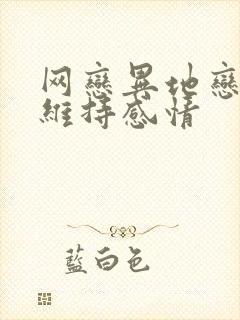 网戀異地戀
維持感情
藍白色